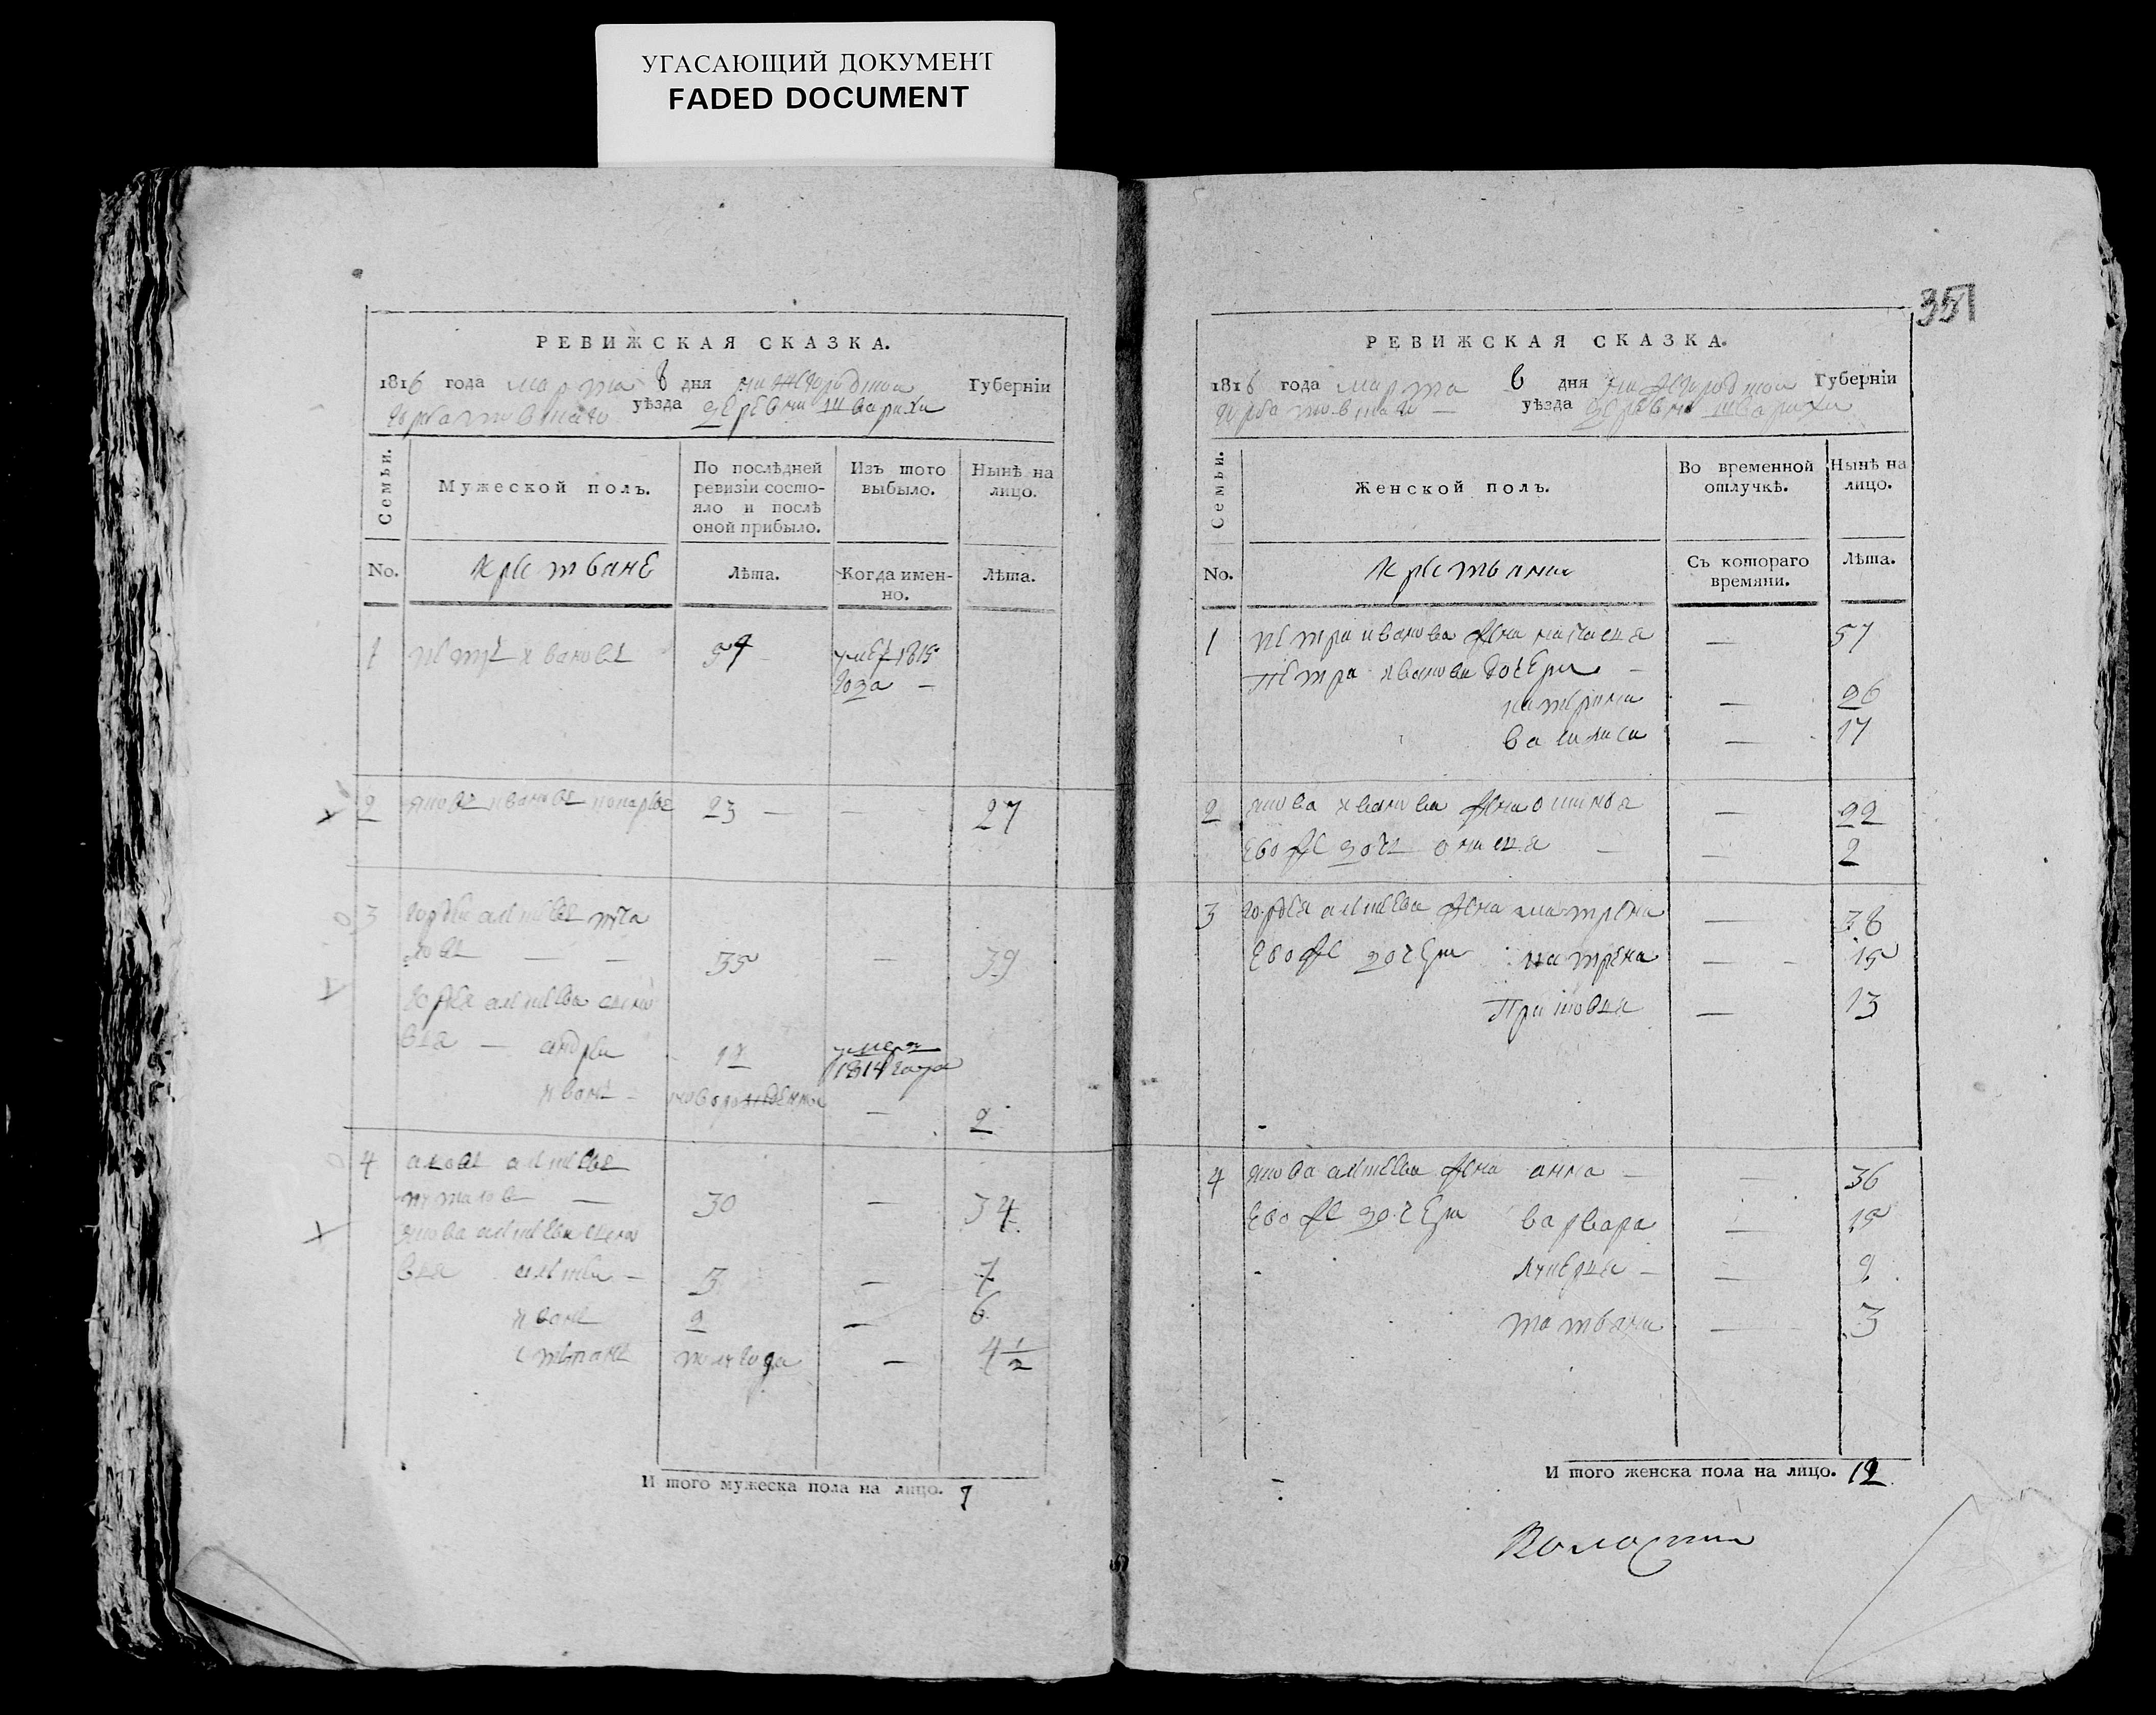 УГАСАЮЩИЙ ДОКУМЕНТ
FADED DOCUMENT
РЕВИЖСКАЯ СКАЗКА.
1816 года марта 8 дня нижегородской Губернїи
горбатовскаго уѣзда деревни шварихи
Семьи.
Мужеской полъ.
По послѣдней
ревизїи состо-
яло и послѣ
оной прибыло.
Изъ того
выбыло.
Нынѣ на
лицо.
No.
крестьяне
Лѣта.
Когда имен-
но.
Лѣта.
1 петръ ивановъ 54 умер 1815
года —
2 яковъ ивановъ 23 — — 27
3 гордей алексеевъ
35 — 39
гордея алексеева сыно
вья — андреи 12 умеръ
1814 года
иванъ новорожденной — 2
4 яковъ алексеевъ
30 — 34
якова алексеева сыно
вья алексеи — 3 — 7
иванъ 2 — 6
степанъ полугода — 4 1/2
И того мужеска пола на лицо. 7
351
РЕВИЖСКАЯ СКАЗКА.
1816 года марта 8 дня нижегородской Губернїи
горбатовскаго — уѣзда деревни шварихи
Семьи.
Женской полъ.
Во временной
отлучкѣ.
Нынѣ на
лицо.
No.
крестьяне
Съ котораго
времяни.
Лѣта.
1 петра иванова жена настасья — 57
Петра иванова дочери —
катерина — 26
василиса — 17
2 якова иванова жена — 22
ево же дочь — 2
3 гордея алексеева жена матрена — 38
ево же дочери матрена — 15
Прасковья — 13
4 якова алексеева жена анна — — 36
ево же дочери варвара — 15
лукерья — — 9
татьяна — 3
И того женска пола на лицо. 12